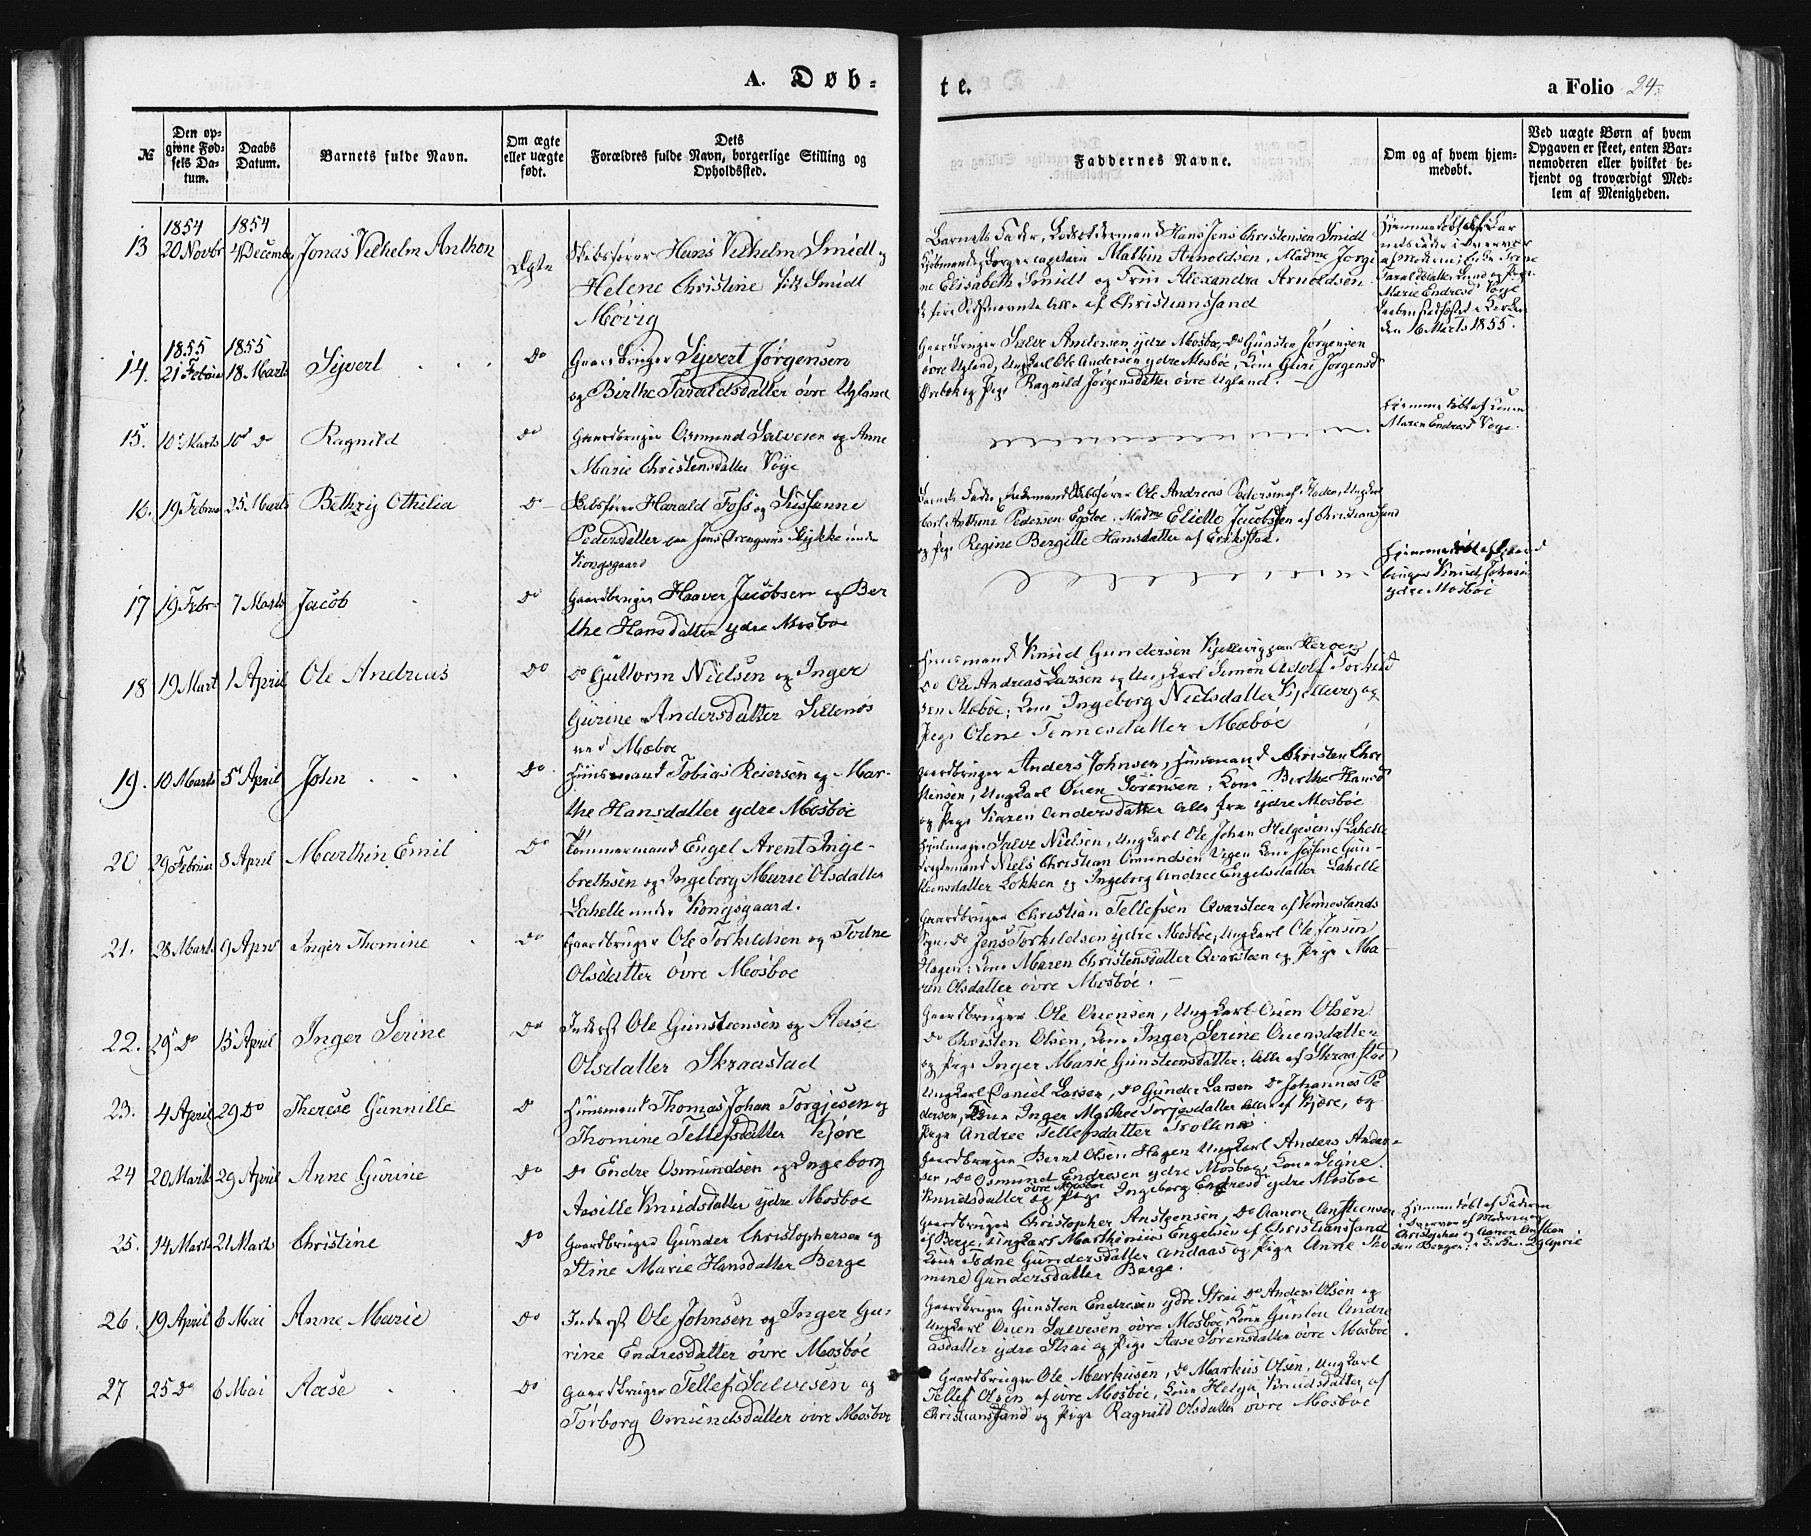 A. Døb-
te.
a Folio 24.
№
Den op-
givne Fød-
sels Da-
tum.
Daabs
Datum.
Barnets fulde Navn.
Om ægte
eller uægte
født.
Dets
Forældres fulde Navn, borgerlige Stilling og
Opholdssted.
Faddernes Navne.
Om og af hvem hjem-
medøbt.
Ved uægte Børn af hvem
Opgaven er skeet, enten Bar-
nemoderen eller hvilket be-
kjendt og troværdigt Med-
lem af Menigheden.
1854 1854
13 20 Novbr 4 Decembr Jonas Vilhelm Anthon Ægte Skibsfører Hans Vilhelm Smidt og
Helene Christine født Smidt
Møvig
Barnets Fader, Hans Jens Christensen Smidt
Kjøbmand Arnoldsen, Madme Jørgi
ne Elisabeth Smidt og Alexandra Arnoldsen
af Christianssand
Marie Endresd Voye
den 16 Marts 1855.
1855 1855
14. 21 Februar 18 Marts Sÿvert Do Gaardbruger Sÿvert Jørgensen
og Birthe Taraldsdatter øvre Ugland
Gaardbruger Salve Andersen ydre Mosbøe, Do Gunsten Jørgensen
øvre Ugland, Ungkarl Ole Andersen ydre Mosbøe, Kone Guri Jørgensd
og Pige Ragnild Jørgensdatter øvre Ugland.
15. 10 Marts 10 Do Ragnild Do Gaardbruger Osmund Salvesen og Anne
Marie Christensdatter Vöÿe
Hjemmedøbt af Konen
Maren Endresd Voye.
16. 19 Februar 25 Marts Bethzÿ Othilia Do Skibsfører Harald Foss og Susanne
Pedersdatter paa Jens Stykke under
Kongsgaard
Skibsfører Ole Andreas Pedersen Ungkarl
Carl Anthon Pedersen Egsbøe, Madme Eliette Jacobsen af Christianssand
og Pige Regine Bergitte Hansdatter af
17 19 Febr 7 Marts Jacob Do Gaardbruger Haaver Jacobsen og Ber
the Hansdatter ydre Mosbøe
Hjemmedøbt af Gaard
bruger Knud
ydre Mosbøe
18 19 Mart 1 April Ole Andreas Do Do Guttorm Nielsen og Inger
Gurine Andersdatter
ved Mæbøe
Huusmand Knud Gundersen Kjellevig
Do Ole Andreas Larsen og Ungkarl Simon Adolf Torkild
sen Mæbøe; Kone Ingeborg Nielsdatter Kjellevig og
Pige Olene Tønnesdatter Mæbøe
19. 10 Marts 5 April John Do Huusmand Tobias Reiersen og Mar-
the Hansdatter ydre Mosbøe
Gaardbruger Anders Johnsen, Huusmand Christen Chri
stensen, Ungkarl Ouen Sørensen, Kone Birthe Hansd
og Pige Karen Andersdatter alle fra ydre Mosbøe
20 29 Februar 8 April Marthin Emil Do Tømmermand Engel Arent Inge-
brethsen og Ingeborg Marie Olsdatter
Lahelle under Kongsgaard.
Salve Nielsen, Ungkarl Ole Johan Helgesen af Lahelle
Niels Christian Omundsen Vigen Kone Josine Gun-
datter Lokken og Ingeborg Andree Engelsdatter Lahelle
21. 28 Marts 9 April Inger Thomine Do Gaardbruger Ole Torkildsen og Todne
Olsdatter øvre Mosbøe
Gaardbruger Christian Tellefsen Qvarsteen af Vennesland
Sogn, Do Jens Torkildsen ydre Mosbøe, Ungkarl Ole Jensen
Hagen; Kone Maren Christensdatter Qvarsteen og Pige Ma
ren Olsdatter øvre Mosbøe.
22. 25 Do 15 April Inger Serine Do Inderst Ole Gunsteensen og Aase
Olsdatter Skraastad
Gaardbruger Ole Ouensen, Ungkarl Ouen Olsen
Do Christen Olsen, Kone Inger Serine Ouensdatter
og Pige Inger Marie Gunsteensdatter, alle af Skraastad
23. 4 April 29 Do Therese Gunnille Do Huusmand Thomas Johan Torgjesen og
Thomine Tellefsdatter Kjøre
Ungkarl Daniel Larsen, Do Gunder Larsen Do Johannes Pe
dersen, Kone Inger Marthe Torjesdatter alle af Kjøre, og
Pige Andree Tellefsdatter
24 20 Marts 29 April Anne Gurine Do Do Endre Osmundsen og Ingeborg
Assille Knudsdatter ydre Mosbøe
Gaardbruger Bernt Olsen Hagen Ungkarl Anders Ander-
sen, Do Osmund Endresen ydre Mosbøe, Kone Signe
Knudsdatter øvre Mosbøe og Pige Ingeborg Endresd ydre Mosbøe
25. 14 Marts 21 Marts Christine Do Gaardbruger Gunder Christophersen og
Stine Marie Hansdatter Berge
Gaardbruger Christopher Anstgensen, Do Aanon Ansteensen
af Berge, Ungkarl Marthinius Engelsen af Christianssand
Kone Todne Gundersdatter Andaas og Pige Anne Tho
mine Gundersdatter Berge.
Hjemmedøbt af Faderen
i Overvær af Moderen og
Christopher og Aanon Ansteen
sen Berge
26. 19 April 6 Mai Anne Marie Do Inderst Ole Johnsen og Inger Gu-
rine Endresdatter øvre Mosbøe
Gaardbruger Gunsteen Endresen ydre Strai Do Anders Olsen og
Ungkarl Ouen Salvesen øvre Mosbøe, Kone Gunlou Andre
asdatter ydre Strai og Pige Aase Sørensdatter øvre Mosbøe
27 25 Do 6 Mai Aase Do Gaardbruger Tellef Salvesen og
Torborg Omundsdatter øvre Mosbøe
Gaardbruger Ole Markusen, Do Markus Olsen, Ungkarl
Tellef Olsen af øvre Mosbøe, Kone Helga Knudsdatter af
Christianssand og Pige Ragnild Olsdatter øvre Mosbøe